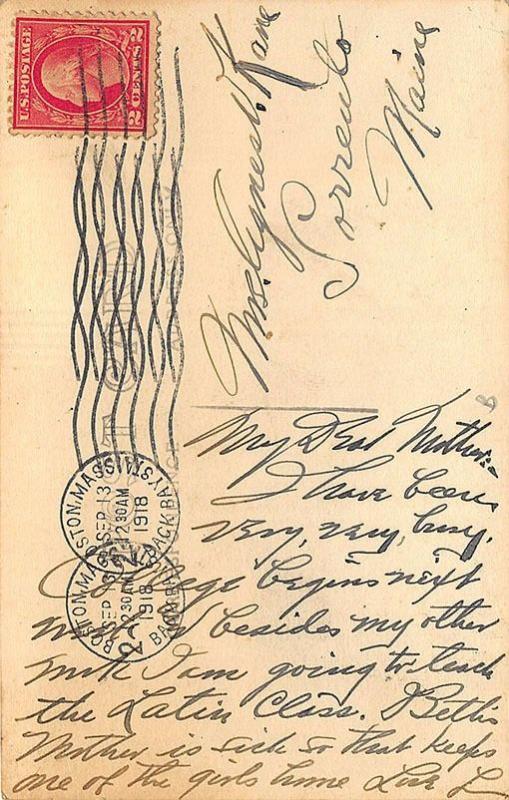 U.S. POSTAGE
2 CENTS 2
Mrs. Agnes W. Kane
Sorrento
Maine
BOSTON, MASS.
SEP 13
12 30 AM
1918
BACK BAY STA.
BOSTON, MASS.
SEP 13
12 30 AM
1918
BACK BAY STA.
POST CARD
My Dear Mother:-
I have been
very, very, busy.
College begins next
week and besides my other
work I am going to teach
the Latin Class. Beth's
Mother is sick so that keeps
one of the girls home Love L